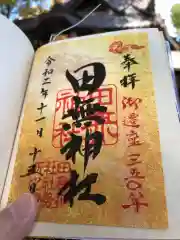 奉拝
御遷座三五〇年
田無神社
令和二年十一月十五日